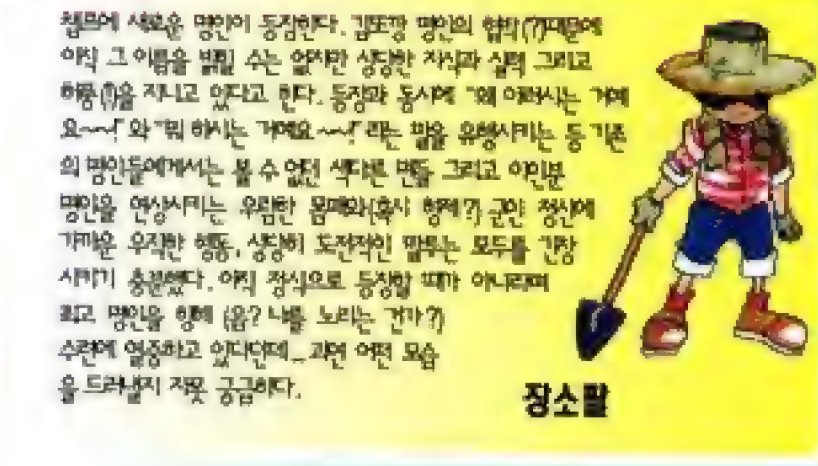 챔프에 새로운 명인이 등장한다. 김또깡 명인의 협박(?)때문에
아직 그 이름을 밝힐 수는 없지만 상당한 지식과 실력 그리고
허풍(?)을 지니고 있다고 한다. 등장과 동시에 "왜 이러시는 거예
요~~!" 와 "뭐 하시는 거예요~~!" 라는 말을 유행시키는 등 기존
의 명인들에게서는 볼 수 없던 색다른 면들 그리고 이인분
명인을 연상시키는 우람한 몸매와(혹시 형제?) 군인 정신에
가까운 우직한 행동, 상당히 도전적인 말투는 모두를 긴장
시키기 충분했다. 아직 정식으로 등장할 때가 아니라며
최고 명인을 향해 (음? 나를 노리는 건가?)
수련에 열중하고 있다던데... 과연 어떤 모습
을 드러낼지 자못 궁금하다.
장소팔